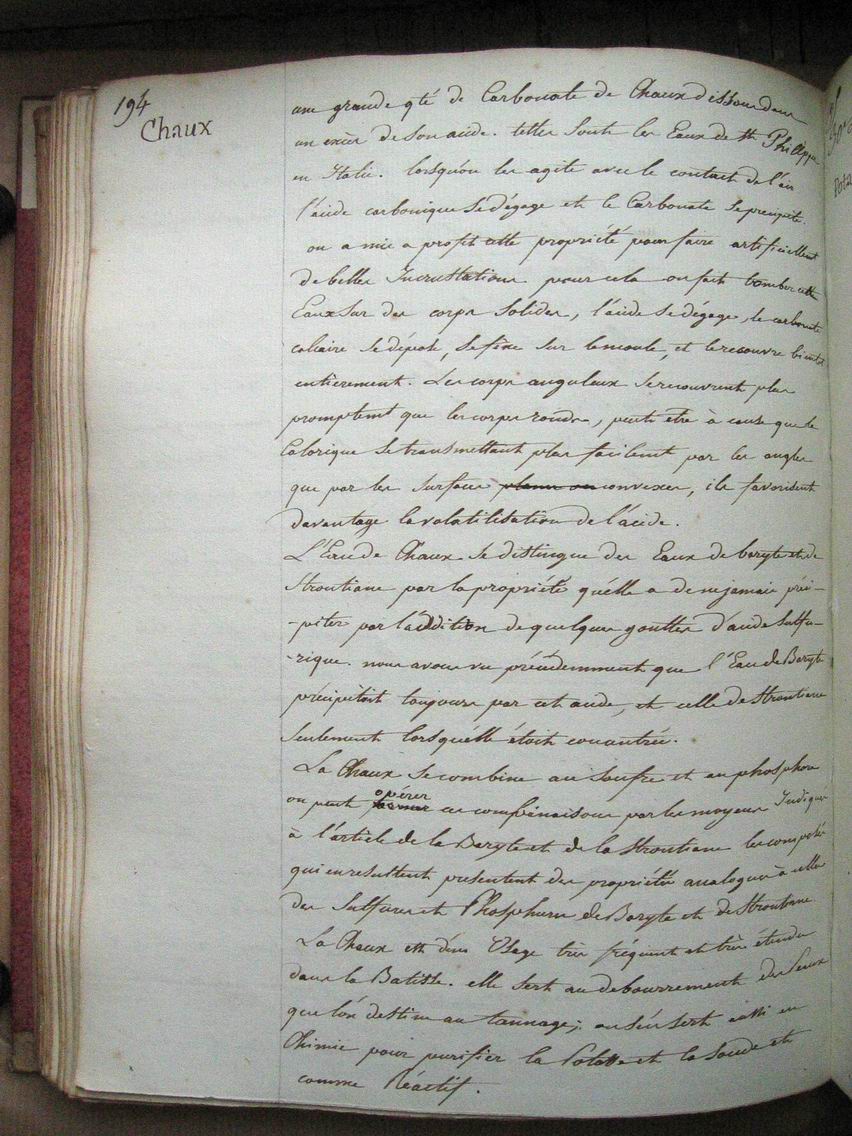 194
Chaux
une grande qté de Carbonate de Chaux dissous dans
un excès de son acide. telles sont les Eaux de St Philippe
en Italie. lorsqu'on les agite avec le contact de l'air
l'acide carbonique se dégage et le Carbonate se precipite.
on a mis a profit cette propriété pour faire artificiellemt
de belles Incrustations pour cela on fait tomber cette
Eaux sur des corps solides, l'acide se dégage, le carbonate
calcaire se dépose, se fixe sur le moule, et le recouvre bientot
entièrement. Les corps anguleux se recouvrent plus
promptemt que les corps ronds, peut etre à cause que le
Calorique se transmettant plus facilemt par les angles
que par les surfaces planes ou convexes, ils favorisent
davantage la volatilisation de l'acide.
L'Eau de Chaux se distingue des Eaux de baryte et de
Strontiane par la propriété qu'elle a de ne jamais préci-
-piter par l'addition de quelques gouttes d'acide Sulfu-
-rique. nous avons vu précédemment que l'Eau de Baryte
précipitoit toujours par cet acide, et celle de Strontiane
seulement lorsqu'elle étoit concentrée.
La Chaux se combine au Soufre et au phosphore
opérer
on peut former ces combinaisons par les moyens Indiqués
à l'article de la Baryte et de la Strontiane les composés
qui en resultent presentent des propriétés analogues à celles
des Sulfures et Phosphures de Baryte et de Strontiane
La Chaux est d'un Usage très fréquent et très étendu
dans la Batisse. elle sert au debourrement des Peaux
que l'on destine au tannage; on s'en sert aussi en
Chimie pour purifier la Potasse et la Soude et
comme Réactif.